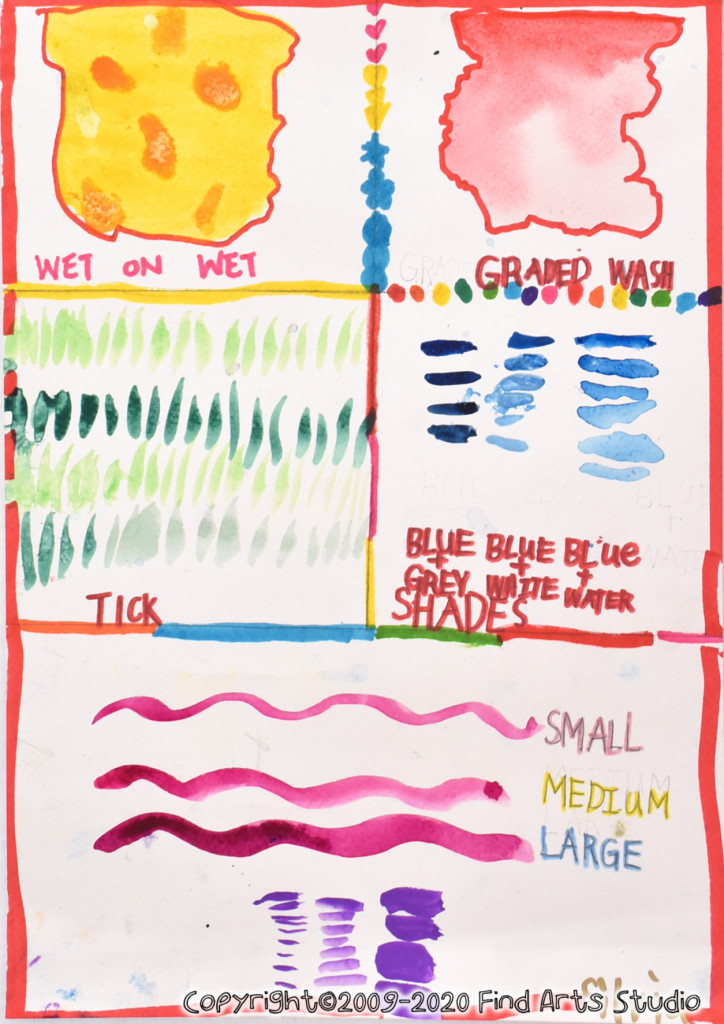 WET ON WET
GRADED WASH
TICK
BLUE BLUE BLUe
+ + +
GREY WHITE WATER
SHADES
SMALL
MEDIUM
LARGE
Copyright©2009-2020 Find Arts Studio